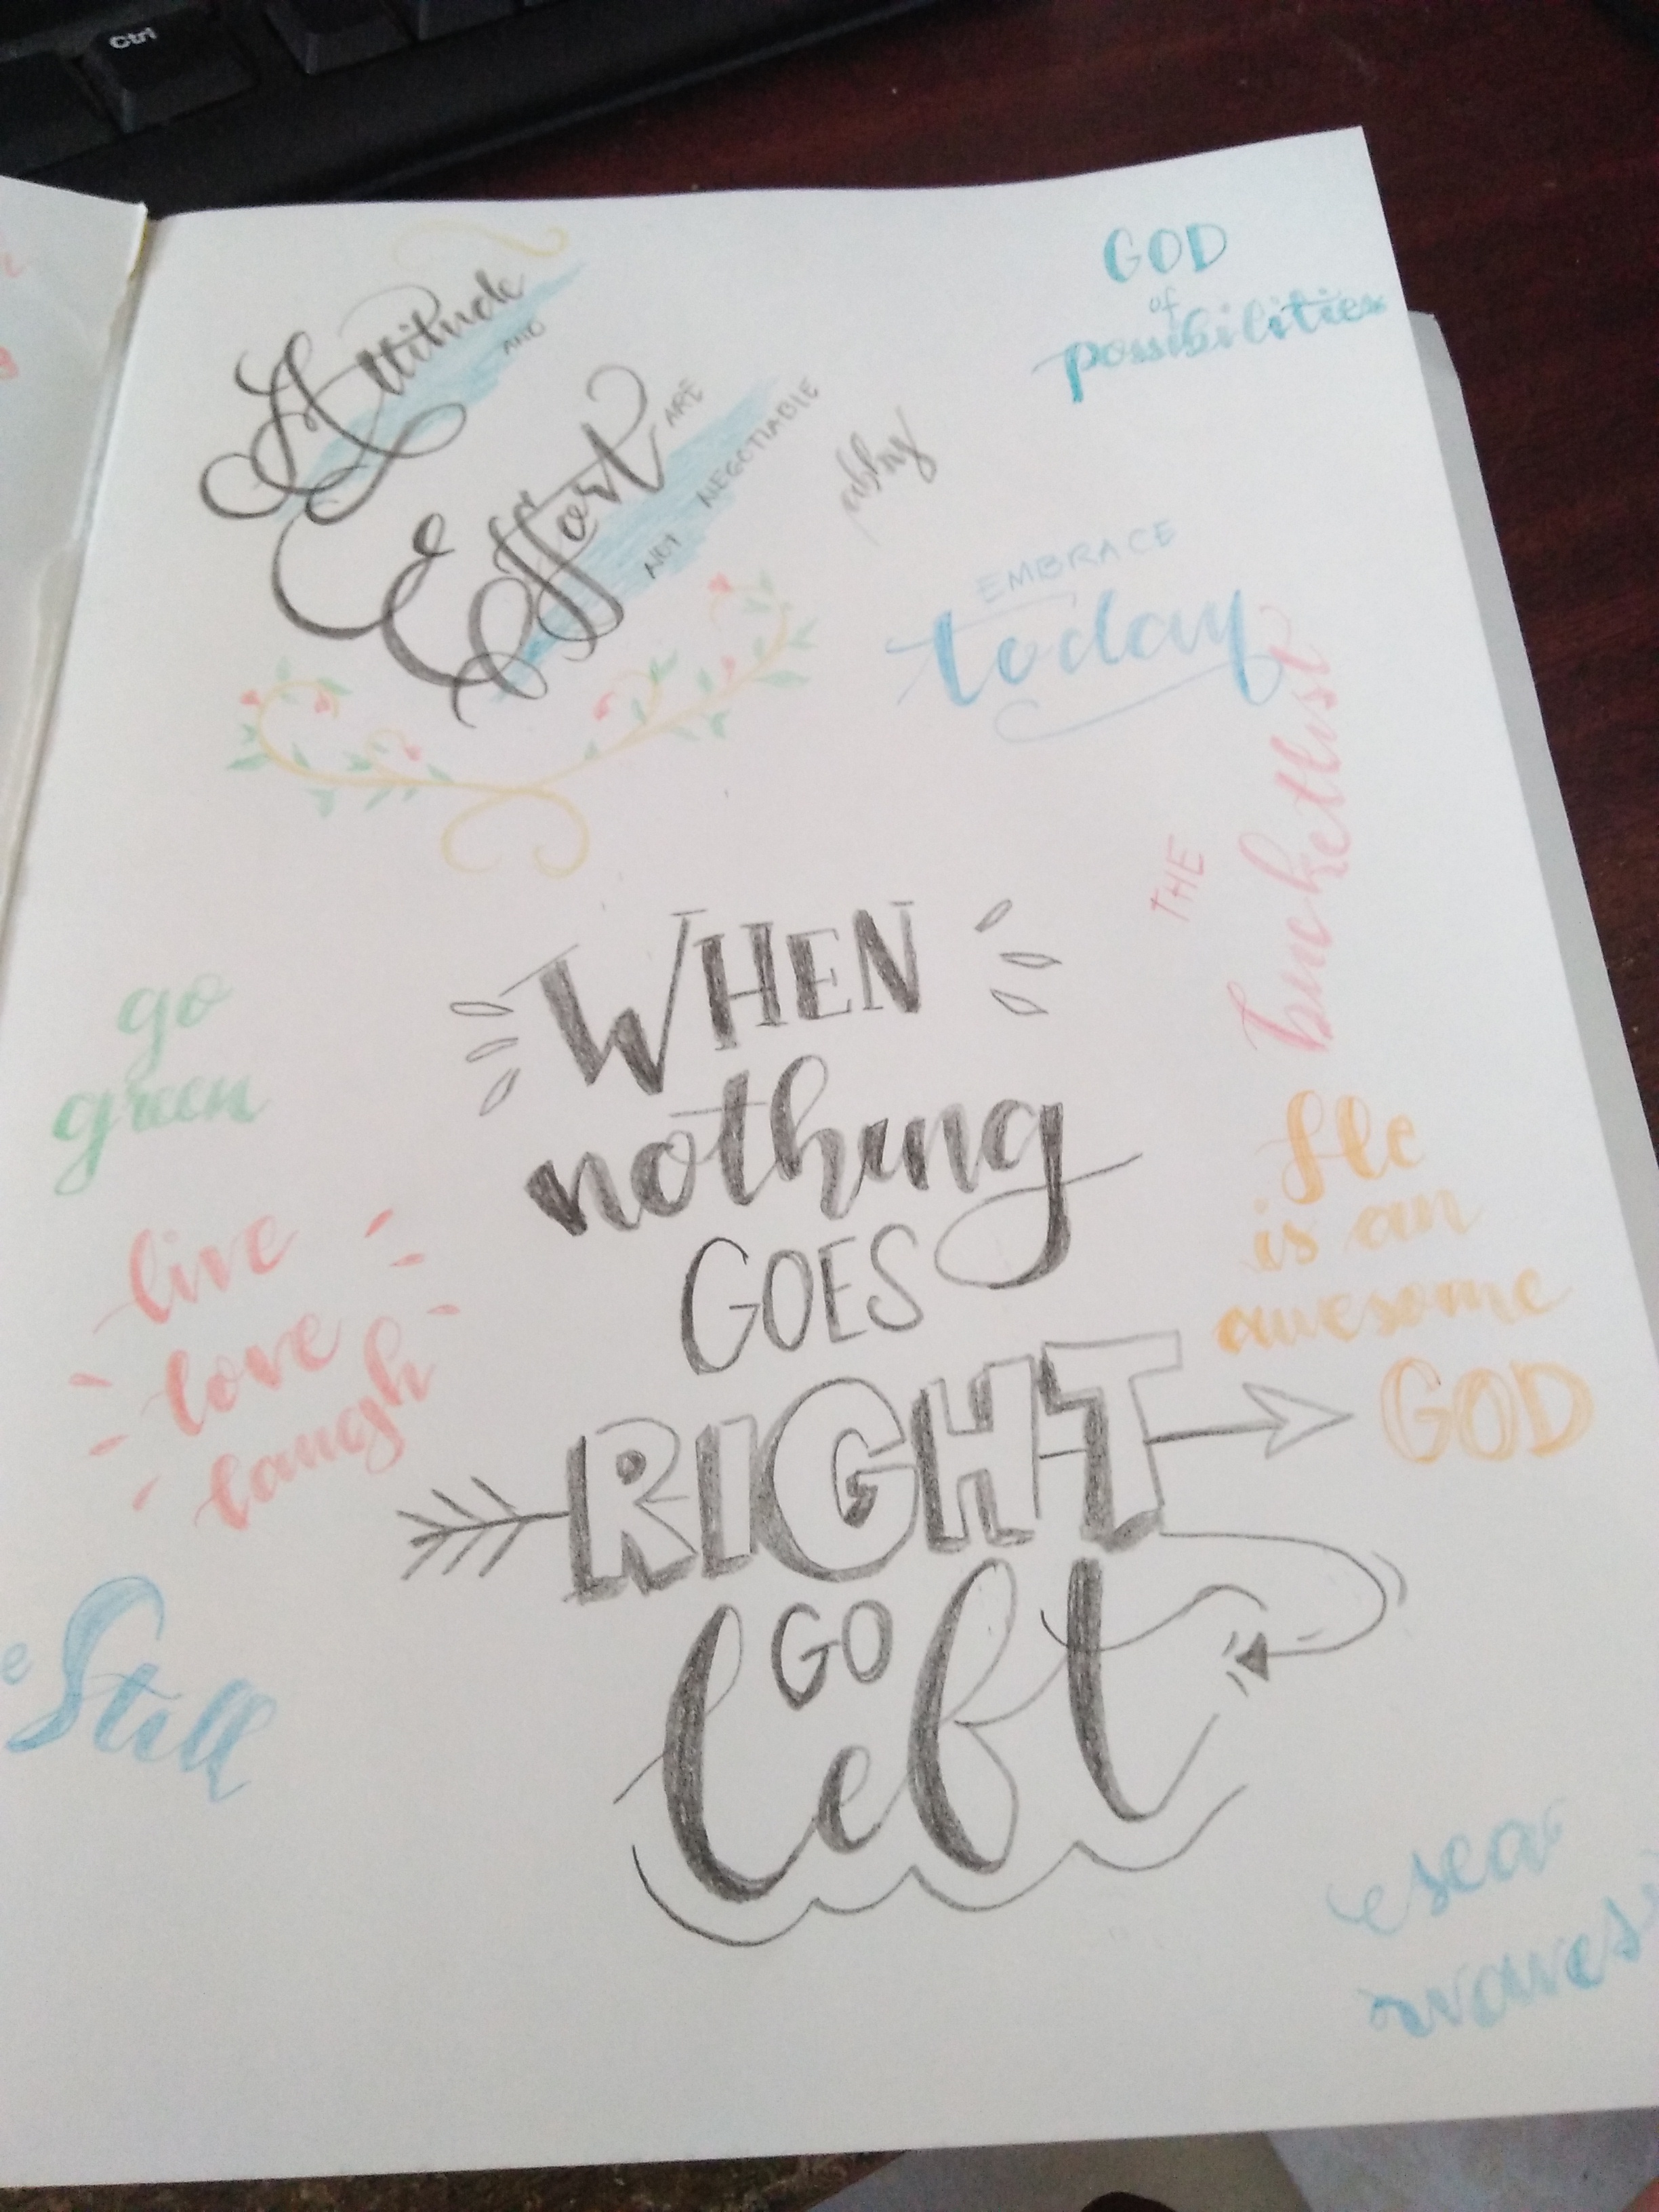 Ctrl
Attitude
AND
Effort
ARE
NOT NEGOTIABLE
abby
GOD
of
possibilities
EMBRACE
today
THE
bucketlist
WHEN
nothing
GOES
RIGHT
GO
left
go
green
live
love
laugh
He
is an
awesome
GOD
e Still
sea
waves